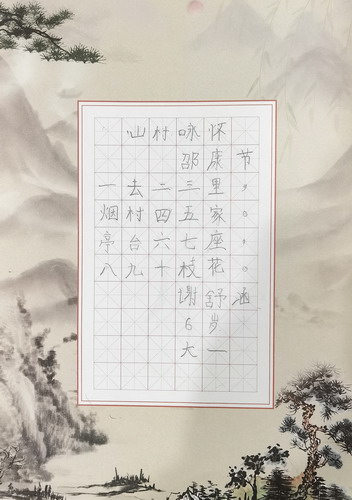 山村咏怀
邵康节
一去二三里，
烟村四五家。
亭台六七座，
八九十枝花。
谢舒涵
6岁
大一